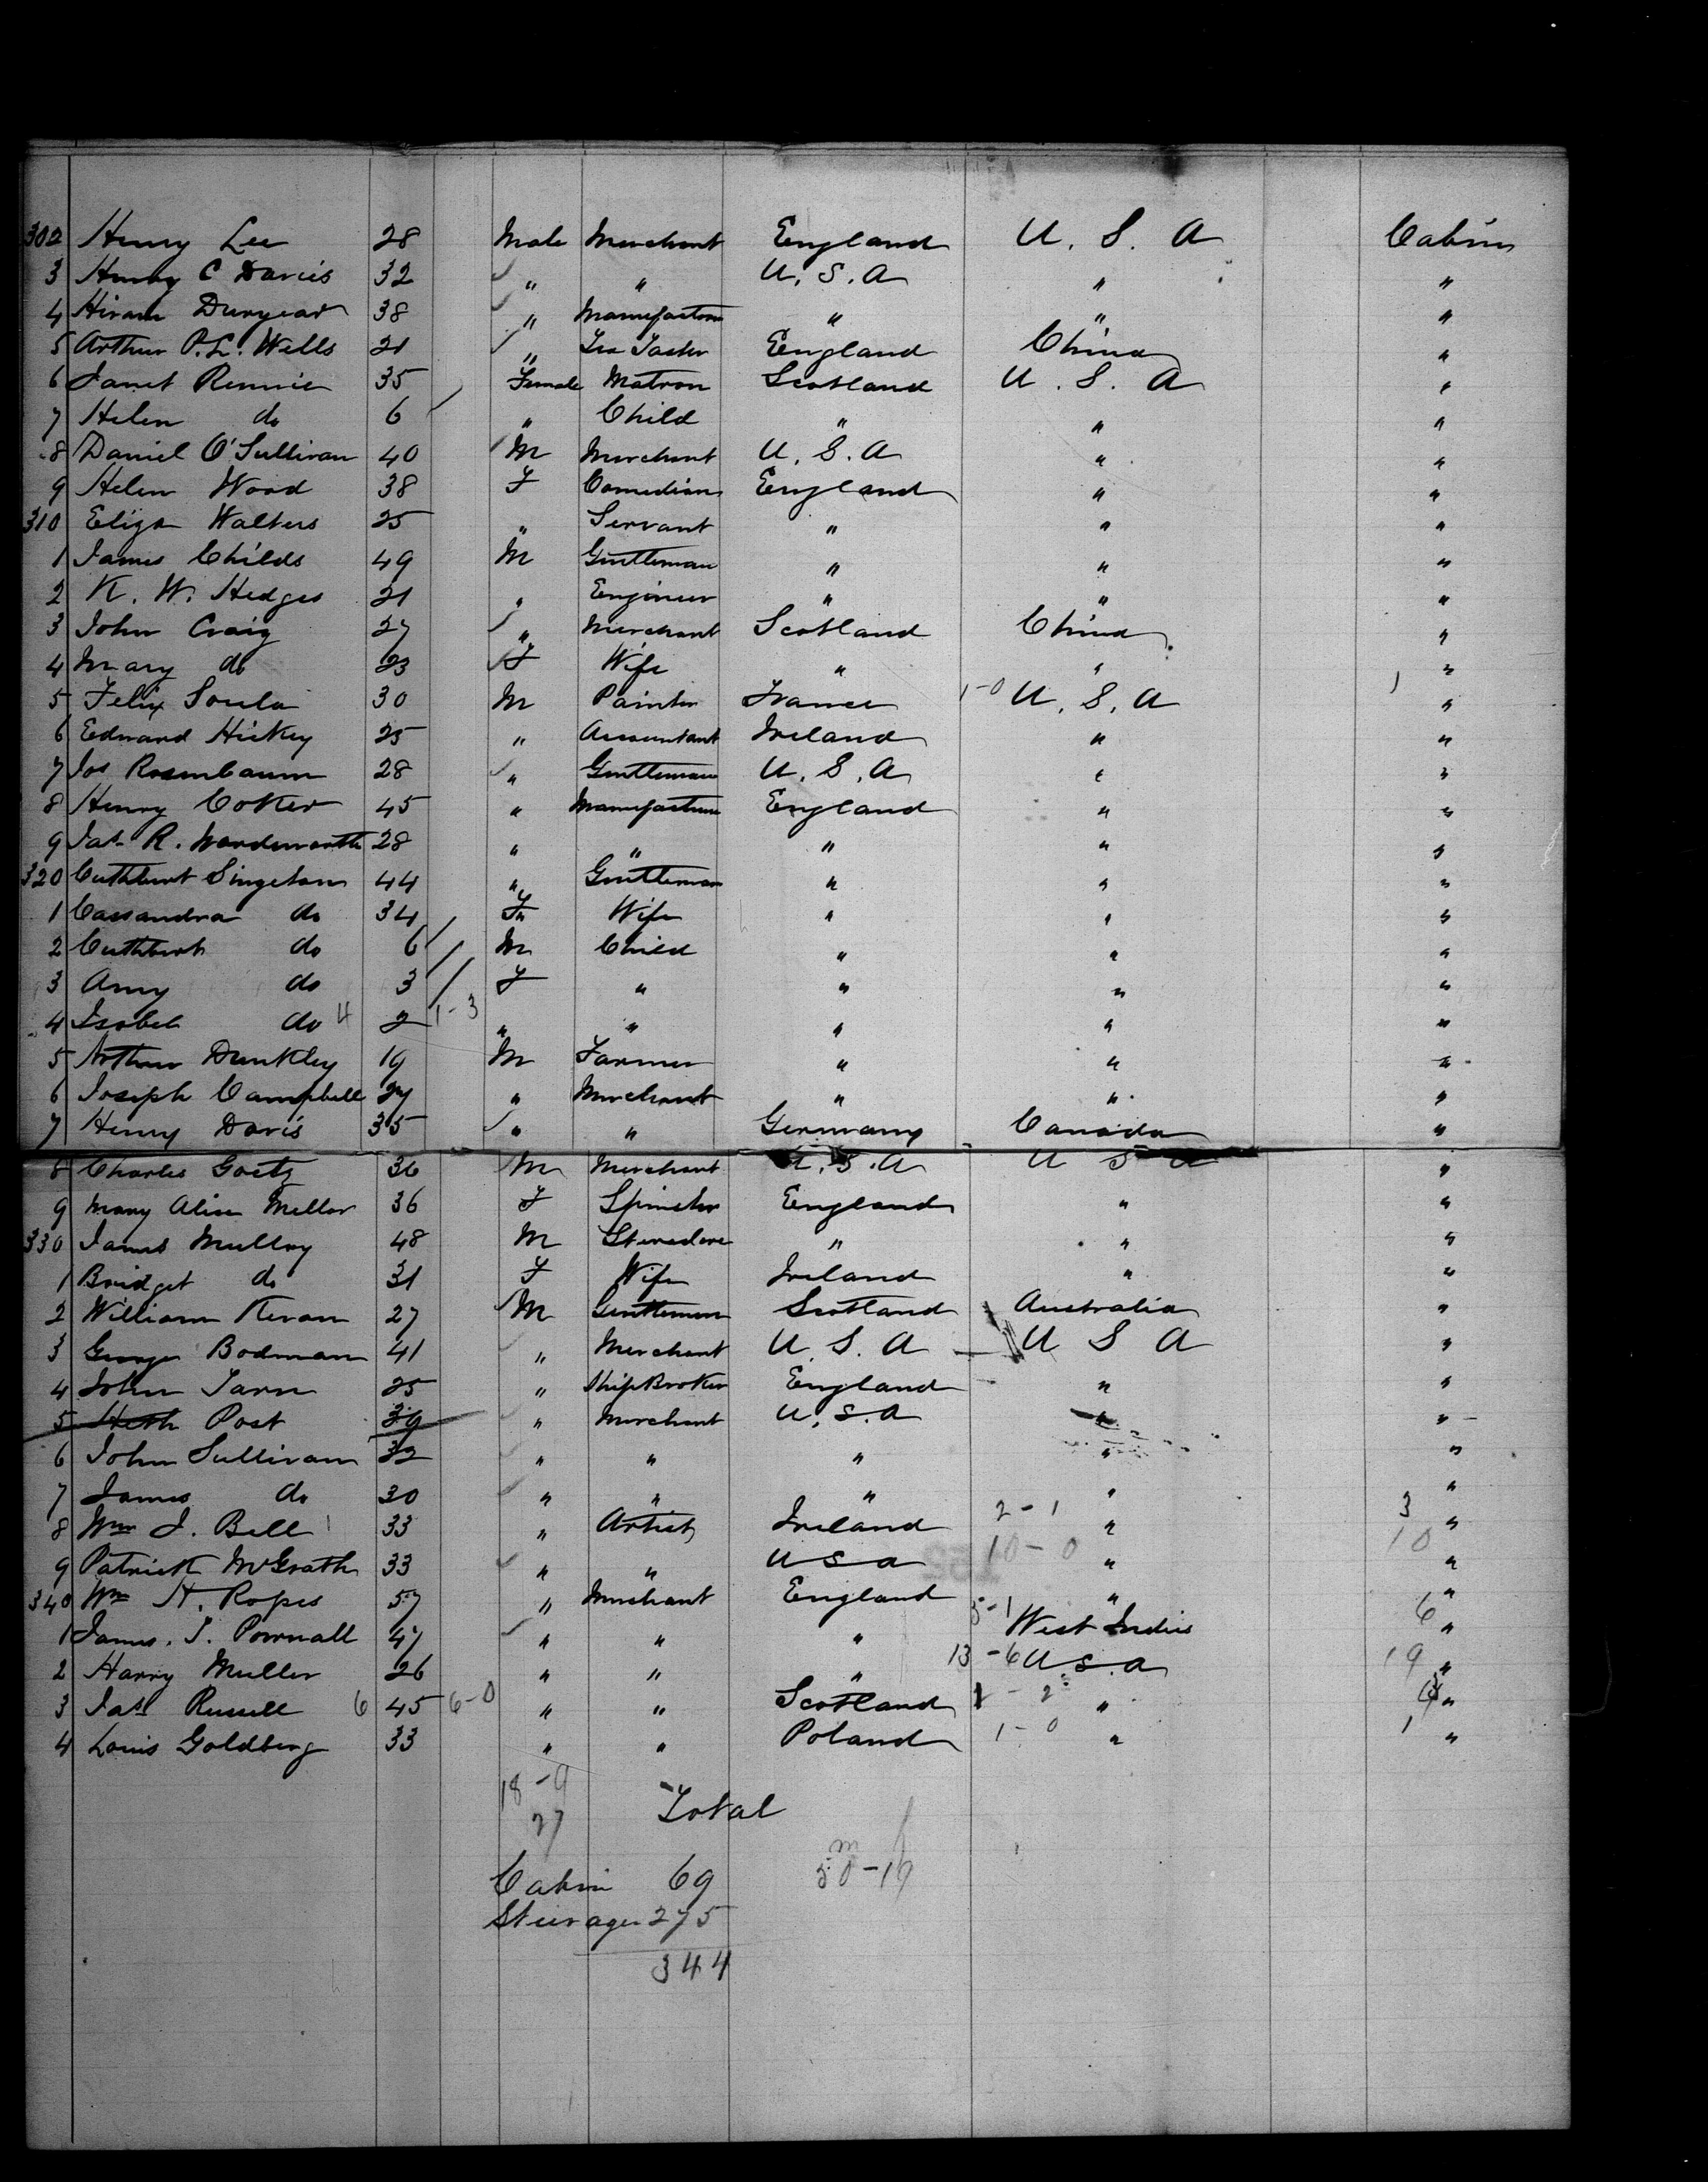 302 Henry Lee 28 Male Merchant England U. S. A Cabin
3 Henry C Davies 32 " " U. S. A " "
4 Hiram Duryear 38 " Manufacturer " " "
5 Arthur P. L. Wells 21 " Tea Taster England China "
6 Janet Rennie 35 Female Matron Scotland U. S. A "
7 Helen do 6 " Child " " "
8 Daniel O'Sullivan 40 M Merchant U. S. A " "
9 Helen Wood 38 F Comedian England " "
310 Eliza Walters 25 " Servant " " "
1 James Childs 49 M Gentleman " " "
2 K. W. Hedges 21 " Engineer " " "
3 John Craig 27 " Merchant Scotland China "
4 Mary do 23 F Wife " " "
5 Felix Soula 30 M Painter France 1-0 U. S. A 1 "
6 Edward Hickey 25 " Accountant Ireland " "
7 Jos Rosenbaum 28 " Gentleman U. S. A " "
8 Henry Coker 45 " Manufacturer England " "
9 Jas R. Wordsworth 28 " " " " "
320 Cuthbert Singeton 44 " Gentleman " " "
1 Cassandra do 34 F Wife " " "
2 Cuthbert do 6 M Child " " "
3 Amy do 3 F " " " "
4 Isobel do 4 2 1-3 " " " " "
5 Arthur Dunkley 19 M Farmer " " "
6 Joseph Campbell 27 " Merchant " " "
7 Henry Davis 35 " " Germany Canada "
8 Charles Goetz 36 M Merchant U. S. A U S A "
9 Mary Alice Mellor 36 F Spinster England " "
330 James Mullry 48 M Stevedore " " "
1 Bridget do 31 F Wife Ireland " "
2 William Kevan 27 M Gentlemen Scotland Australia "
3 George Bodman 41 " Merchant U. S. A U S A "
4 John Tarn 25 " Ship Broker England " "
5 Heth Post 39 " Merchant U. S. A " "
6 John Sullivan 32 " " " " "
7 James do 30 " " " " "
8 Wm J. Bell 33 " Artist Ireland 2-1 " 3 "
9 Patrick McGrath 33 " " U S a 10-0 " 10 "
340 Wm H. Ropes 57 " Merchant England " "
1 James. T. Pownall 47 " " " 5-1 West Indies 6 "
2 Harry Muller 26 " " " 13-6 U. S. a 19 "
3 Jas Russell 6 45 6-0 " " Scotland 1-2 " "
4 Louis Goldberg 33 " " Poland 1-0 " 1 "
18-9
27 Total
m f
Cabin 69 50-19
Steerage 275
344